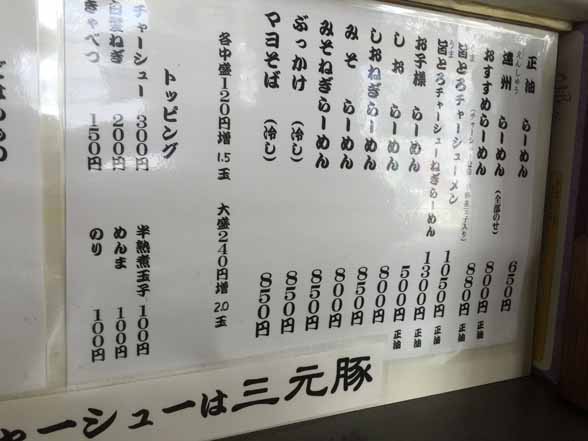 正油 らーめん 650円
えんしゅう
遠州 らーめん 800円 正油
おすすめらーめん (全部のせ) 880円 正油
うま
旨とろチャーシューメン 1050円 正油
うま
旨とろチャーシューねぎらーめん 1300円 正油
お子様 らーめん 500円 正油
しお らーめん 800円
しおねぎらーめん 850円
みそ らーめん 800円
みそねぎらーめん 850円
ぶっかけ (冷し) 850円
マヨそば (冷し) 850円
各中盛120円増 1.5玉 大盛240円増 2.0玉
トッピング
チャーシュー 300円 半熟煮玉子 100円
白髪ねぎ 200円 めんま 100円
きゃべつ 150円 のり 100円
ャーシューは三元豚